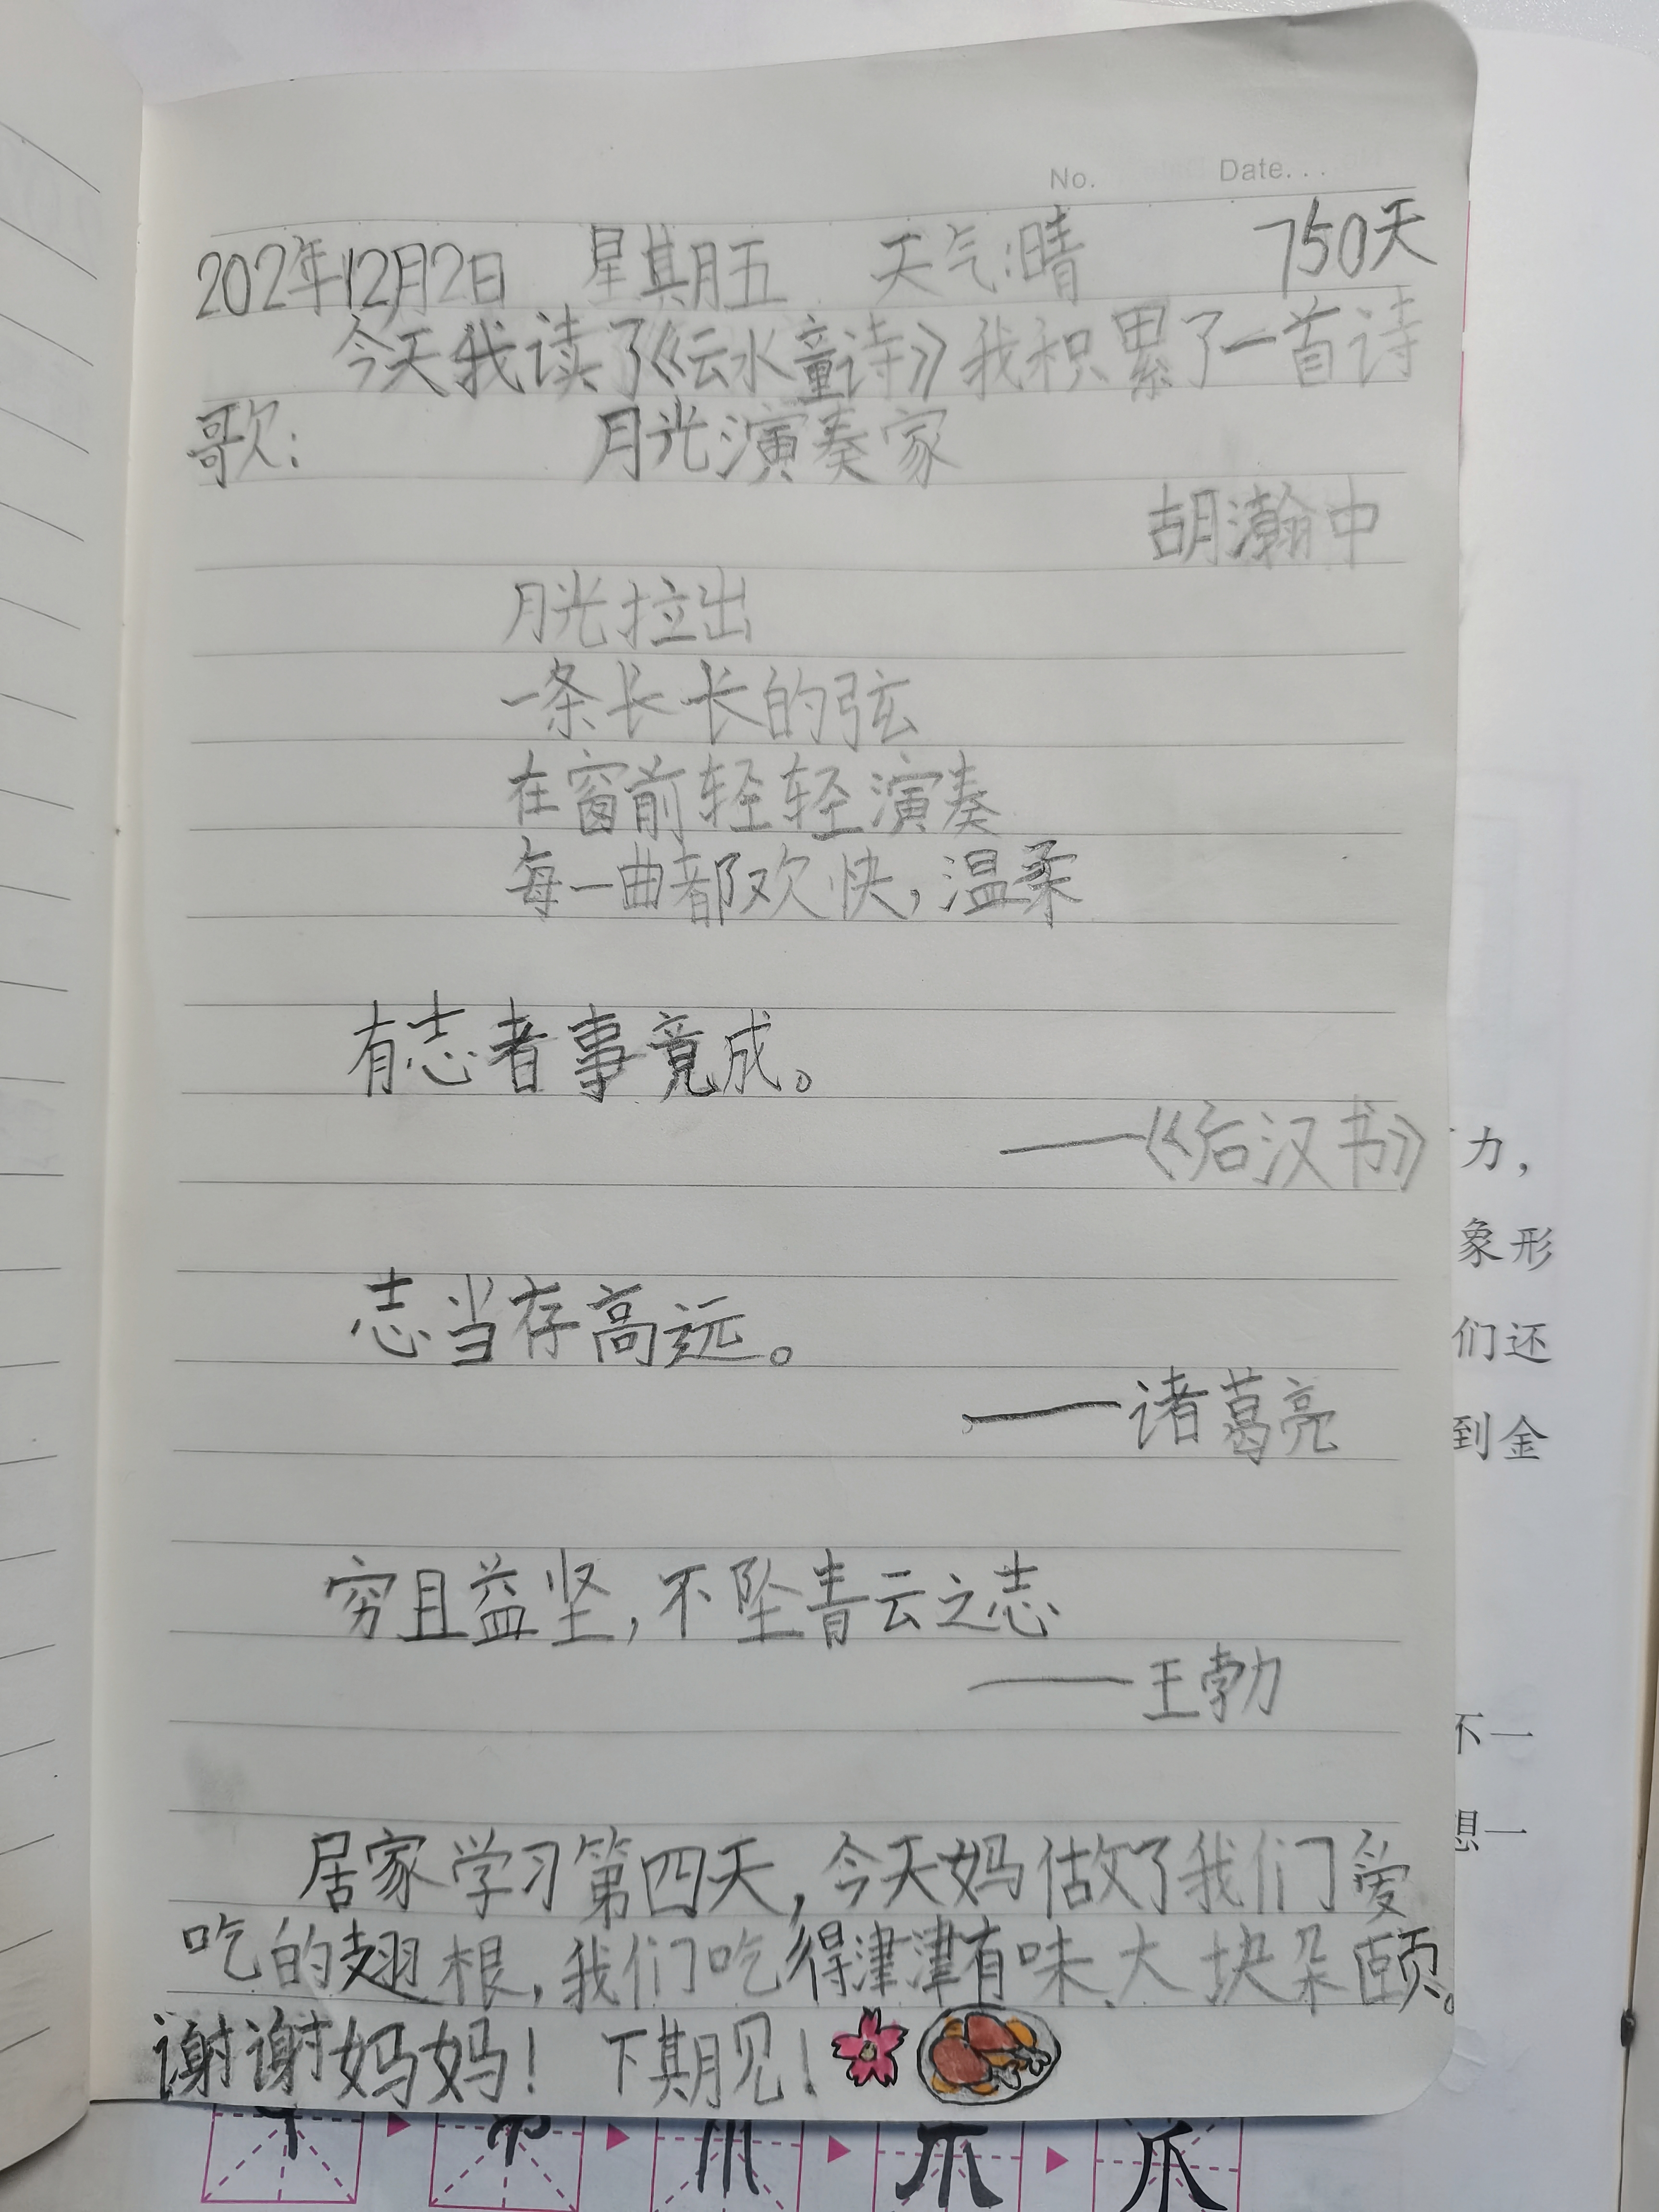 No. Date...
202年12月2日 星期五 天气:晴 750天
今天我读了《云水童诗》我积累了一首诗
歌: 月光演奏家
胡瀚中
月光拉出
一条长长的弦
在窗前轻轻演奏
每一曲都欢快,温柔
有志者事竟成。
——《后汉书》
志当存高远。
——诸葛亮
穷且益坚,不坠青云之志
——王勃
居家学习第四天,今天妈做了我们爱
吃的翅根,我们吃得津津有味、大块朵颐。
谢谢妈妈! 下期见!
力,
象形
们还
到金
不一
想一
爪
爪